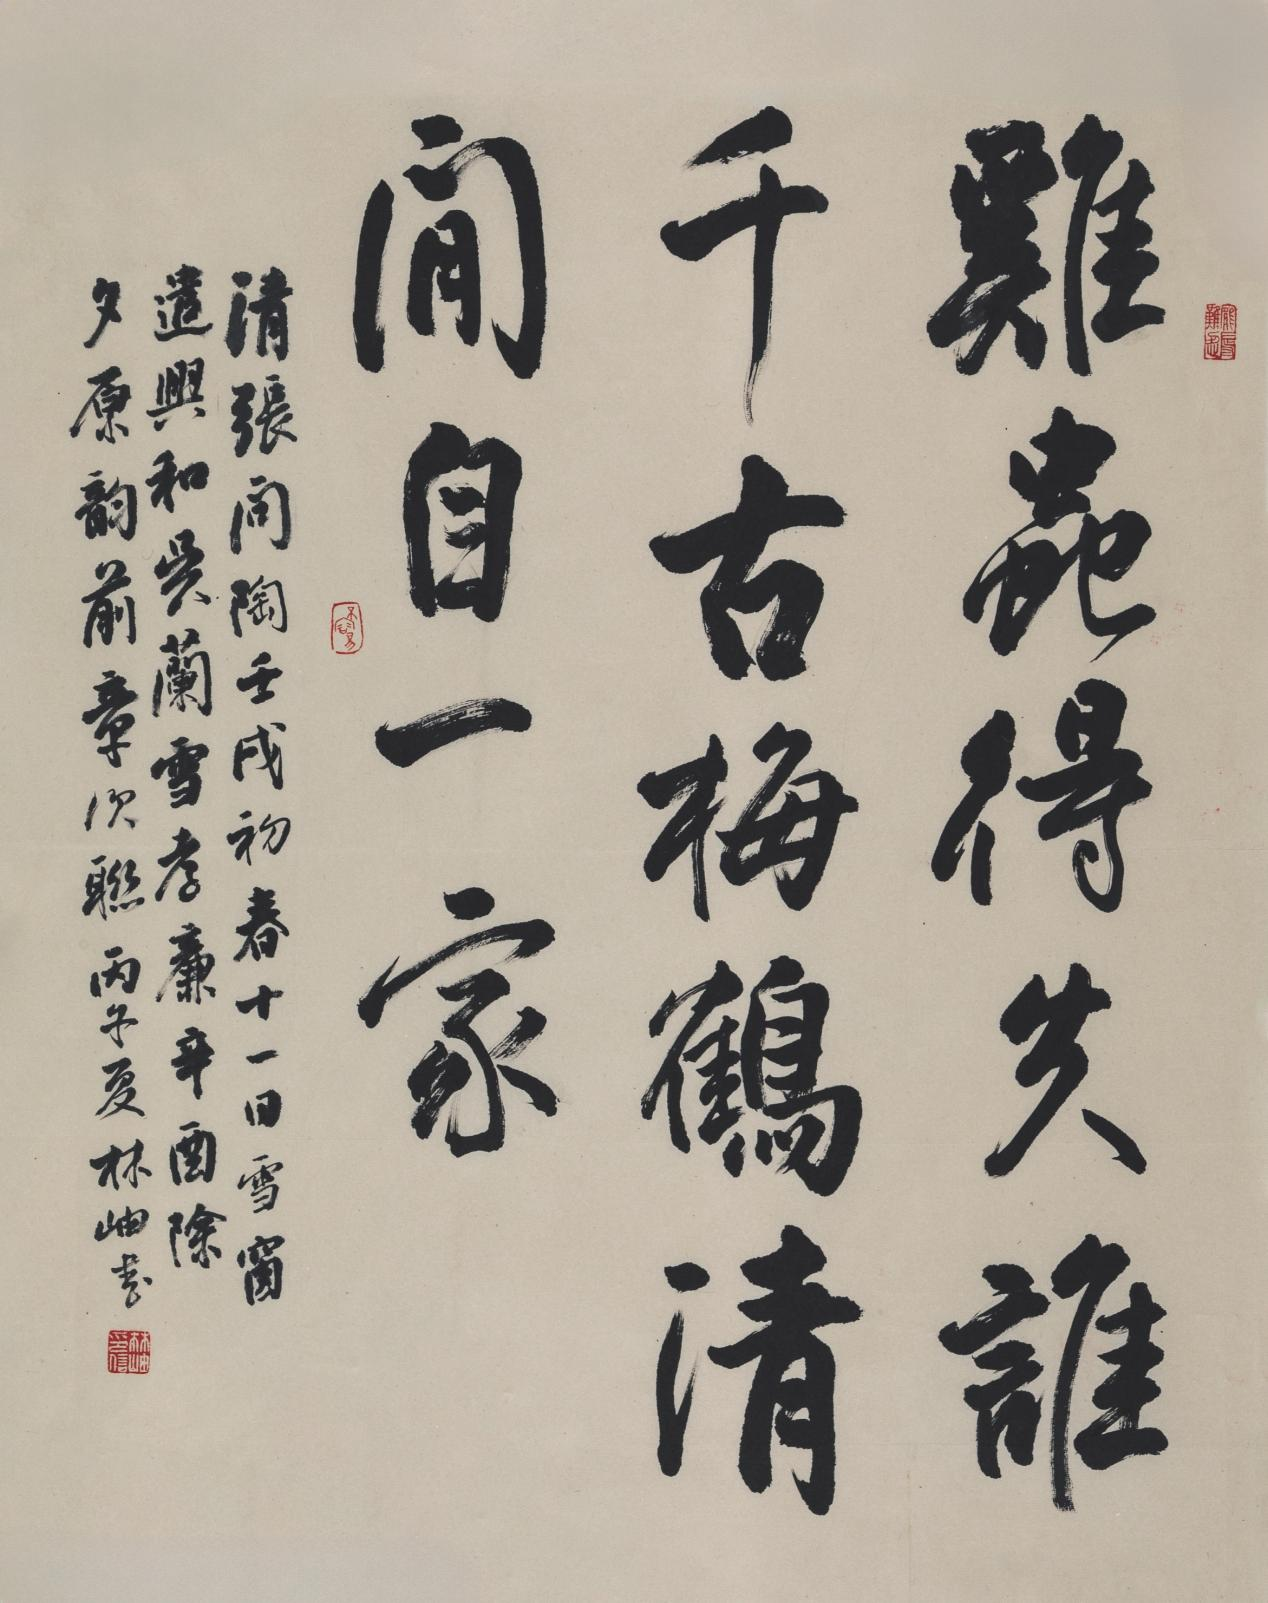 雞蟲得失誰
千古梅鶴清
閒自一家
清張問陶壬戌初春十一日雪窗
遣興和吳蘭雪孝廉辛酉除
夕原韵前章次聯丙子夏林岫书
林岫印信